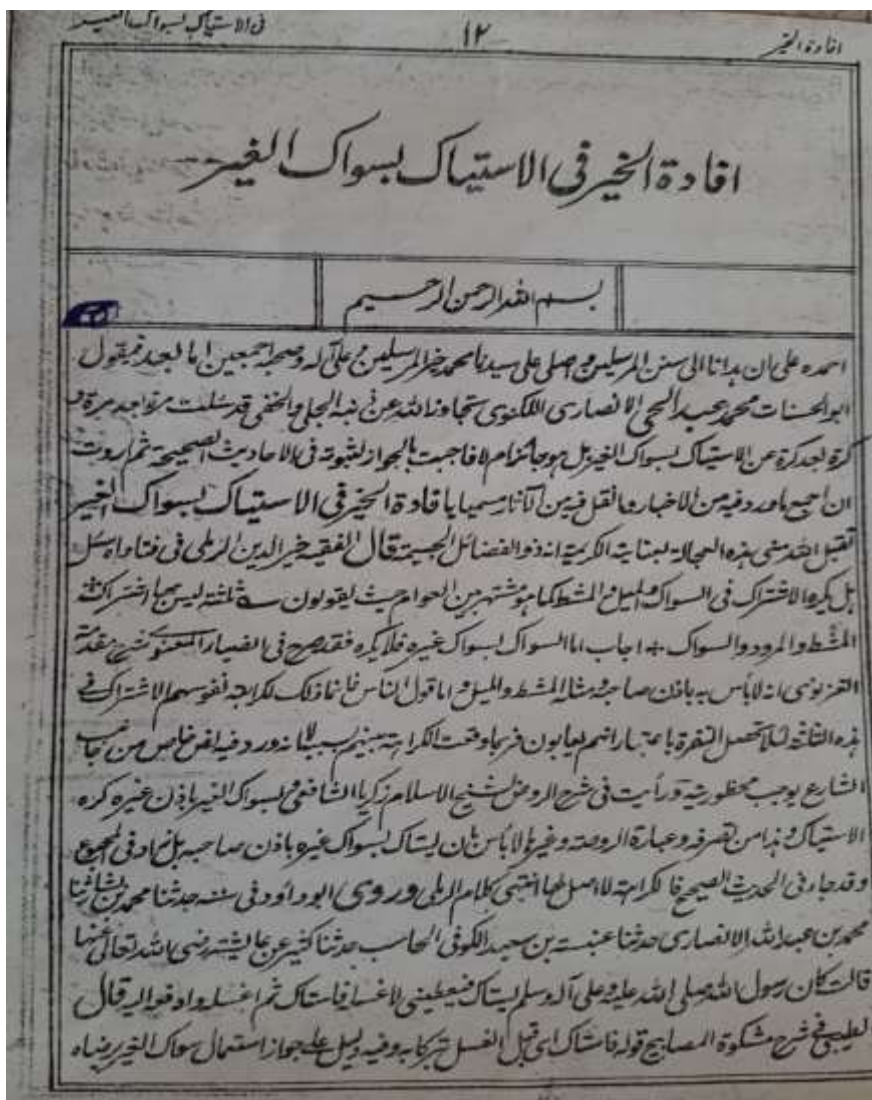 افادة الخير
١٢
فی الاستیاک بسواک الغیر
افادة الخير فی الاستیاک بسواک الغیر
بسم الله الرحمن الرحيم
احمده على ان هدانا الى سنن المرسلين واصلى على سيدنا محمد خير المرسلين وعلى آله وصحبه اجمعين اما بعد فيقول
ابو الحسنات محمد عبد الحی الانصاری اللکنوی تجاوز الله عن ذنبه الجلی والخفی قد سئلت مرة بعد مرة و
كرة بعد كرة عن الاستیاک بسواک الغير هل هو جائز ام لا فاجبت بالجواز لثبوته فی الاحاديث الصحيحة ثم اردت
ان اجمع ما ورد فيه من الاخبار وما نقل فيه من الآثار مسميا بافادة الخير فی الاستیاک بسواک الغير
تقبل الله منی هذه العجالة بعنايته الكريمة انه ذو الفضائل الجسيمة قال الفقيه خير الدين الرملی فی فتاواه سئل
هل يكره الاشتراك فی السواک والميل والمشط كما هو مشتهر بين العوام حيث يقولون ثلثة ليس بها اشتراك
المشط والمرود والسواک + اجاب اما السواک بسواک غيره فلا يكره فقد صرح فی الضياء المعنوی شرح مقدمة
الغزنوی انه لا بأس به باذن صاحبه ومثله المشط والميل واما قول الناس فانما ذلك لكراهة نفوسهم الاشتراك فی
هذه الثلثة لئلا تحصل النفرة باعتبار انهم يعابون فربما وقعت الكراهة بينهم بسببه لا انه ورد فيه نص خاص من جانب
الشارع يوجب محظوريته ورأيت فی شرح الروض لشيخ الاسلام زكريا الشافعی وبسواک الغير باذن غيره كره
الاستیاک وهذا من تصرفه وعبارة الروضة وغيرها لا بأس بان يستاك بسواک غيره باذن صاحبه بل زاد فی المجموع
وقد جاء فی الحديث الصحيح فالكراهة لا اصل لها انتهى كلام الرملی وروى ابو داود فی سننه حدثنا محمد بن بشار ثنا
محمد بن عبد الله الانصاری حدثنا عنبسة بن سعيد الكوفی الحاسب حدثنا كثير عن عائشة رضی الله تعالى عنها
قالت كان رسول الله صلى الله عليه وعلى آله وسلم يستاك فيعطينی لاغسله فاستاك ثم اغسله وادفعه اليه قال
الطيبی فی شرح مشكوة المصابيح قوله فاستاك ای قبل الغسل تبركا به وفيه دليل على جواز استعمال سواك الغير برضاه